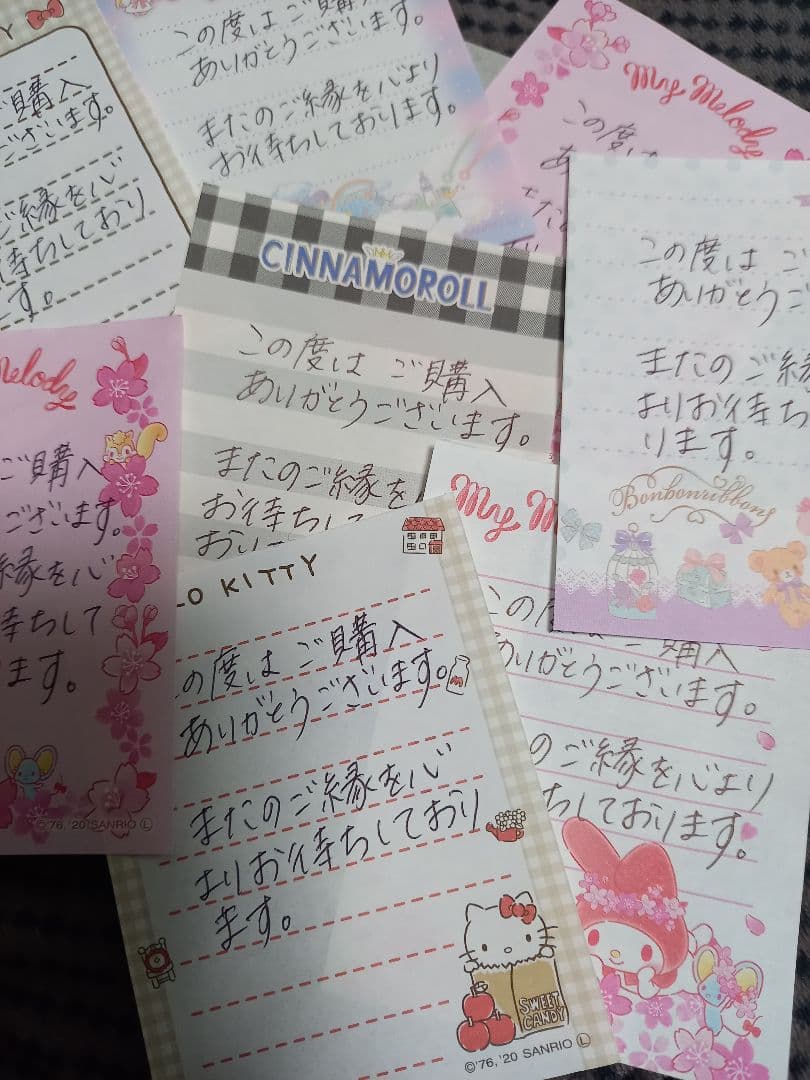 この度は ご購入
ありがとうございます。
またのご縁を心より
お待ちしております。
My Melody
この度は
ご購入
ございます。
ご縁を心
待ちしており
ます。
CINNAMOROLL
この度は ご購入
ありがとうございます。
またのご縁を
お待ちして
おり
この度は ご
ありがとうござ
またのご縁
よりお待ち
ります。
Bonbonribbon
Melody
ご購入
ございます。
縁を心
待ちして
ます。
©'76,'20 SANRIO Ⓛ
LO KITTY
の度は ご購入
ありがとうございます。
またのご縁を心
よりお待ちしており
ます。
SWEET
CANDY
©'76,'20 SANRIO Ⓛ
My M
この度は ご購入
ありがとうございます。
のご縁を心より
ちしております。